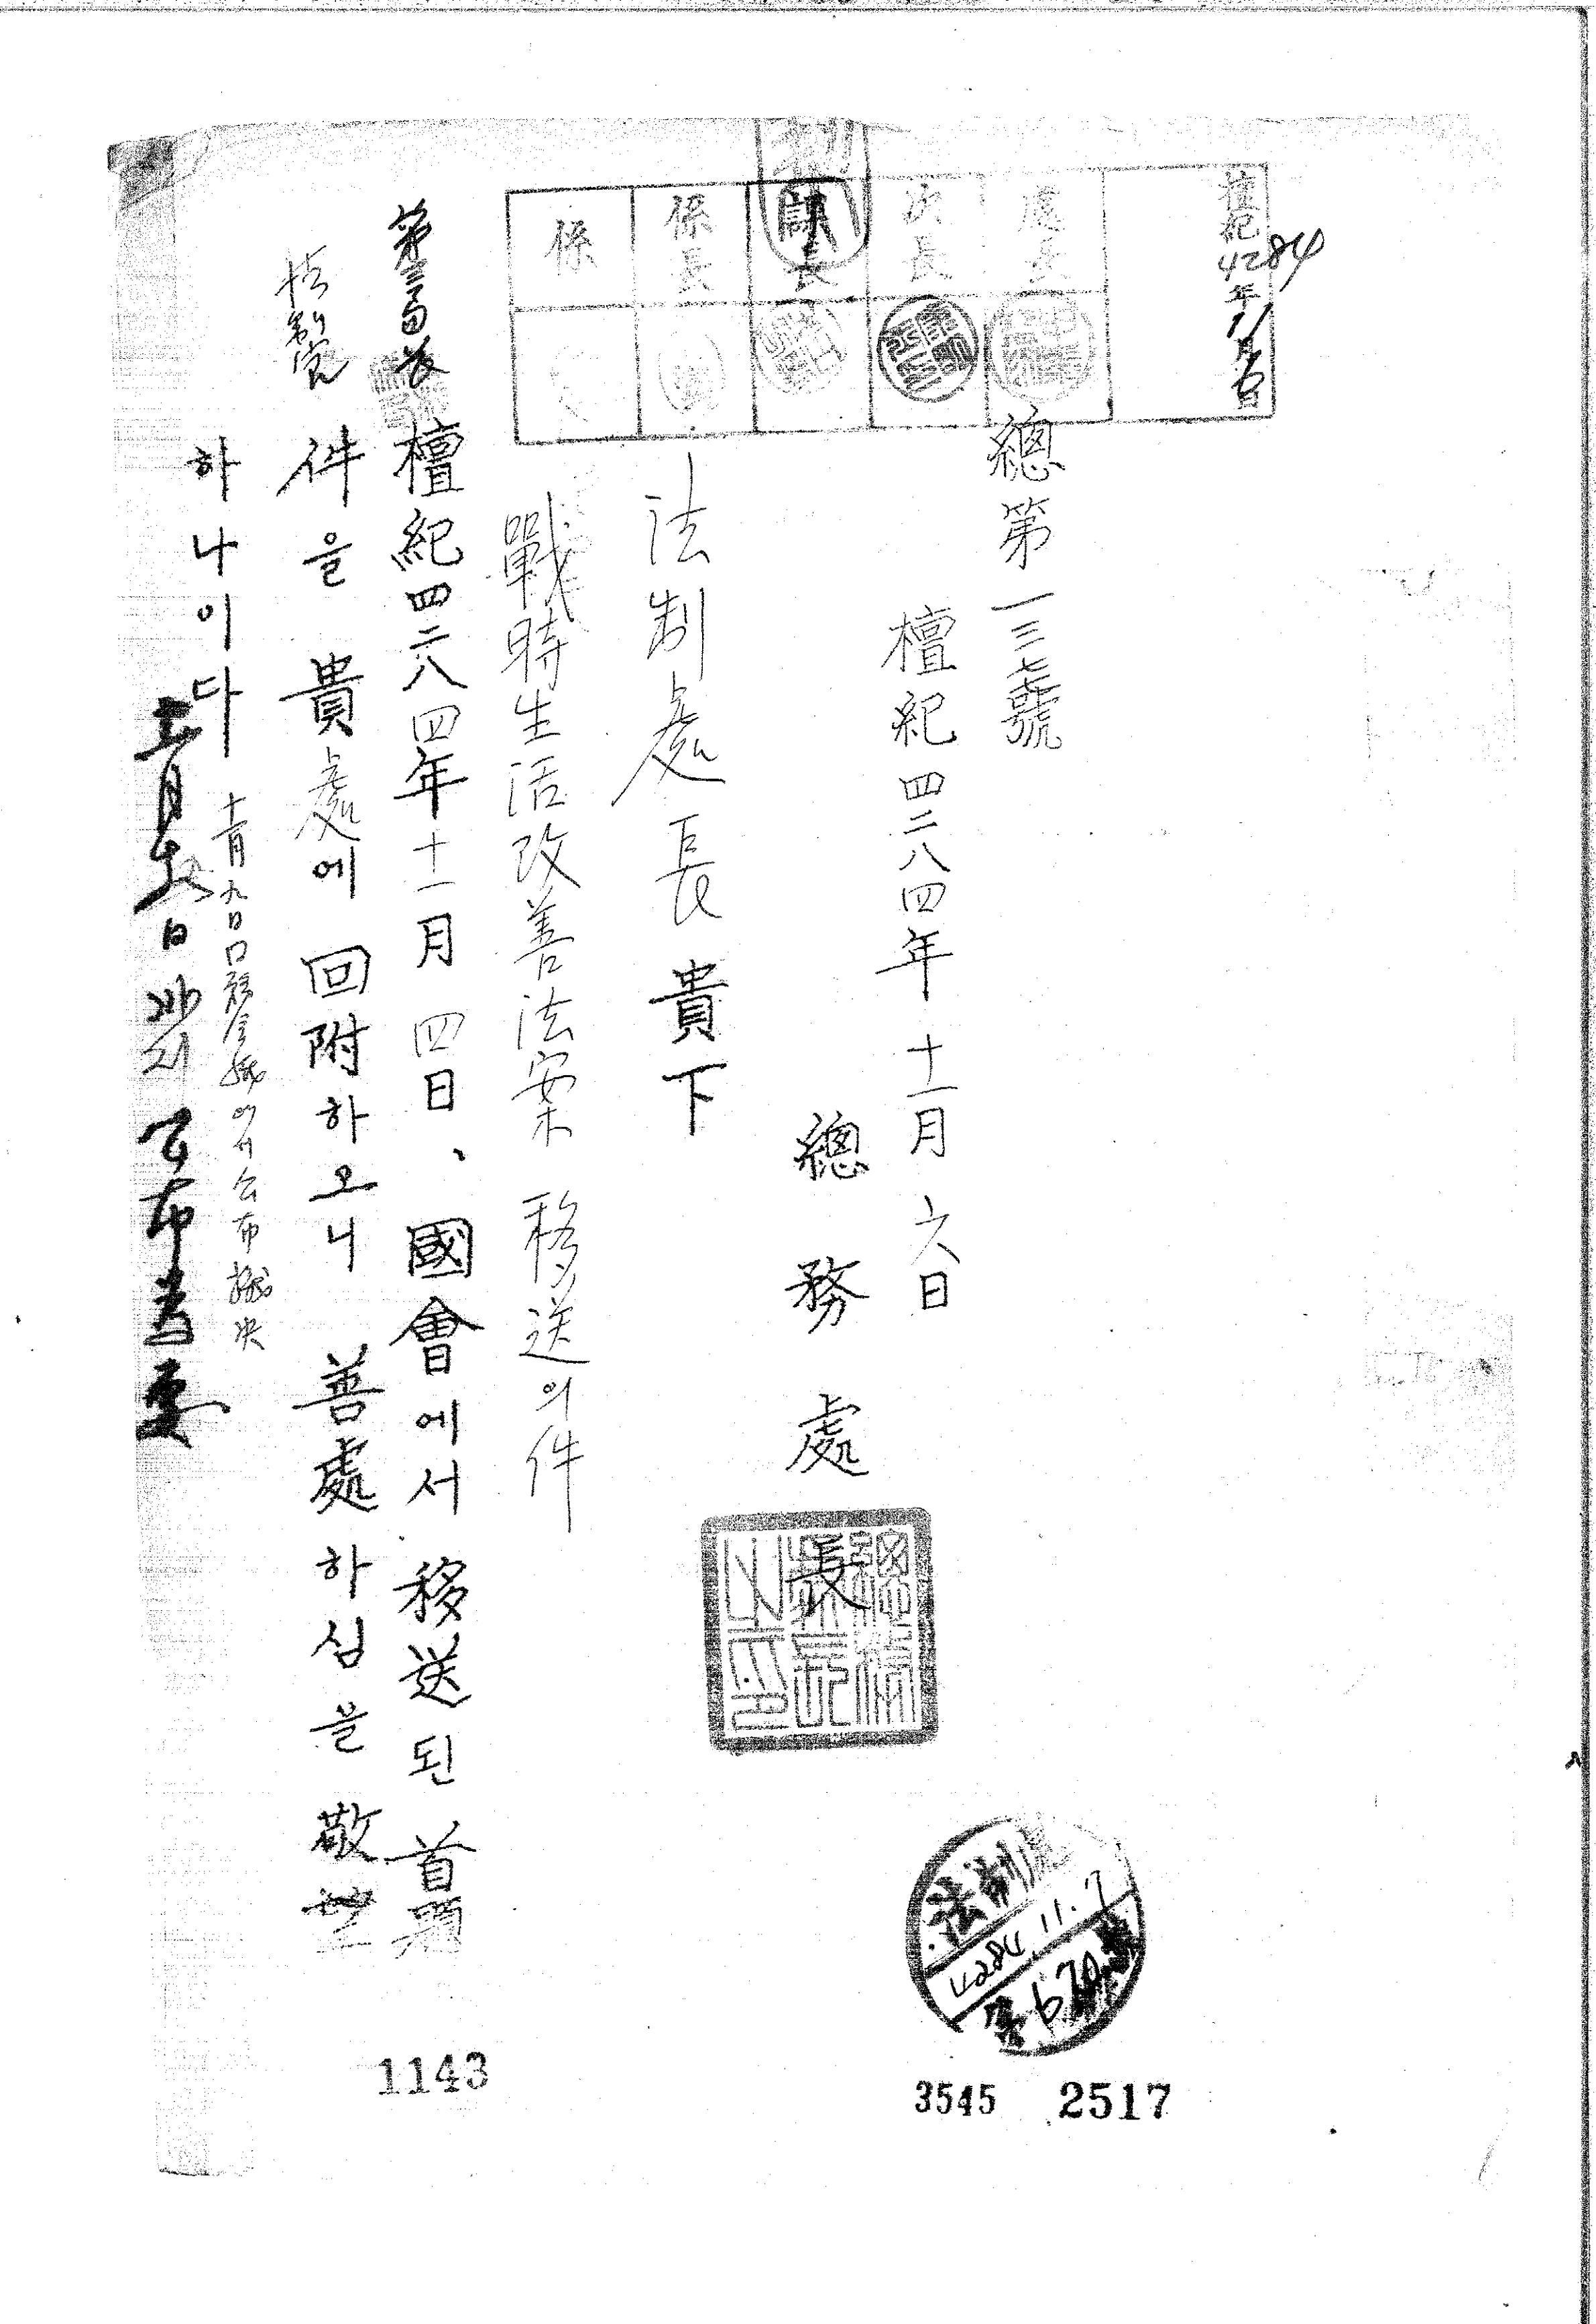 檀紀4284年11月6日
處長
次長
課長
係長
係
總第一三七號
檀紀四二八四年十一月六日
總務處長
法制處長貴下
戰時生活改善法案 移送의件
第三局長
檀紀四二八四年十一月四日、國會에서 移送된 首題
件을 貴處에 回附하오니 善處하심을 敬望
하나이다
十一月九日 國務會議에서 公布議決
日까지 公布를要
法制處
4284.11.7
第670號
1143
3545
2517